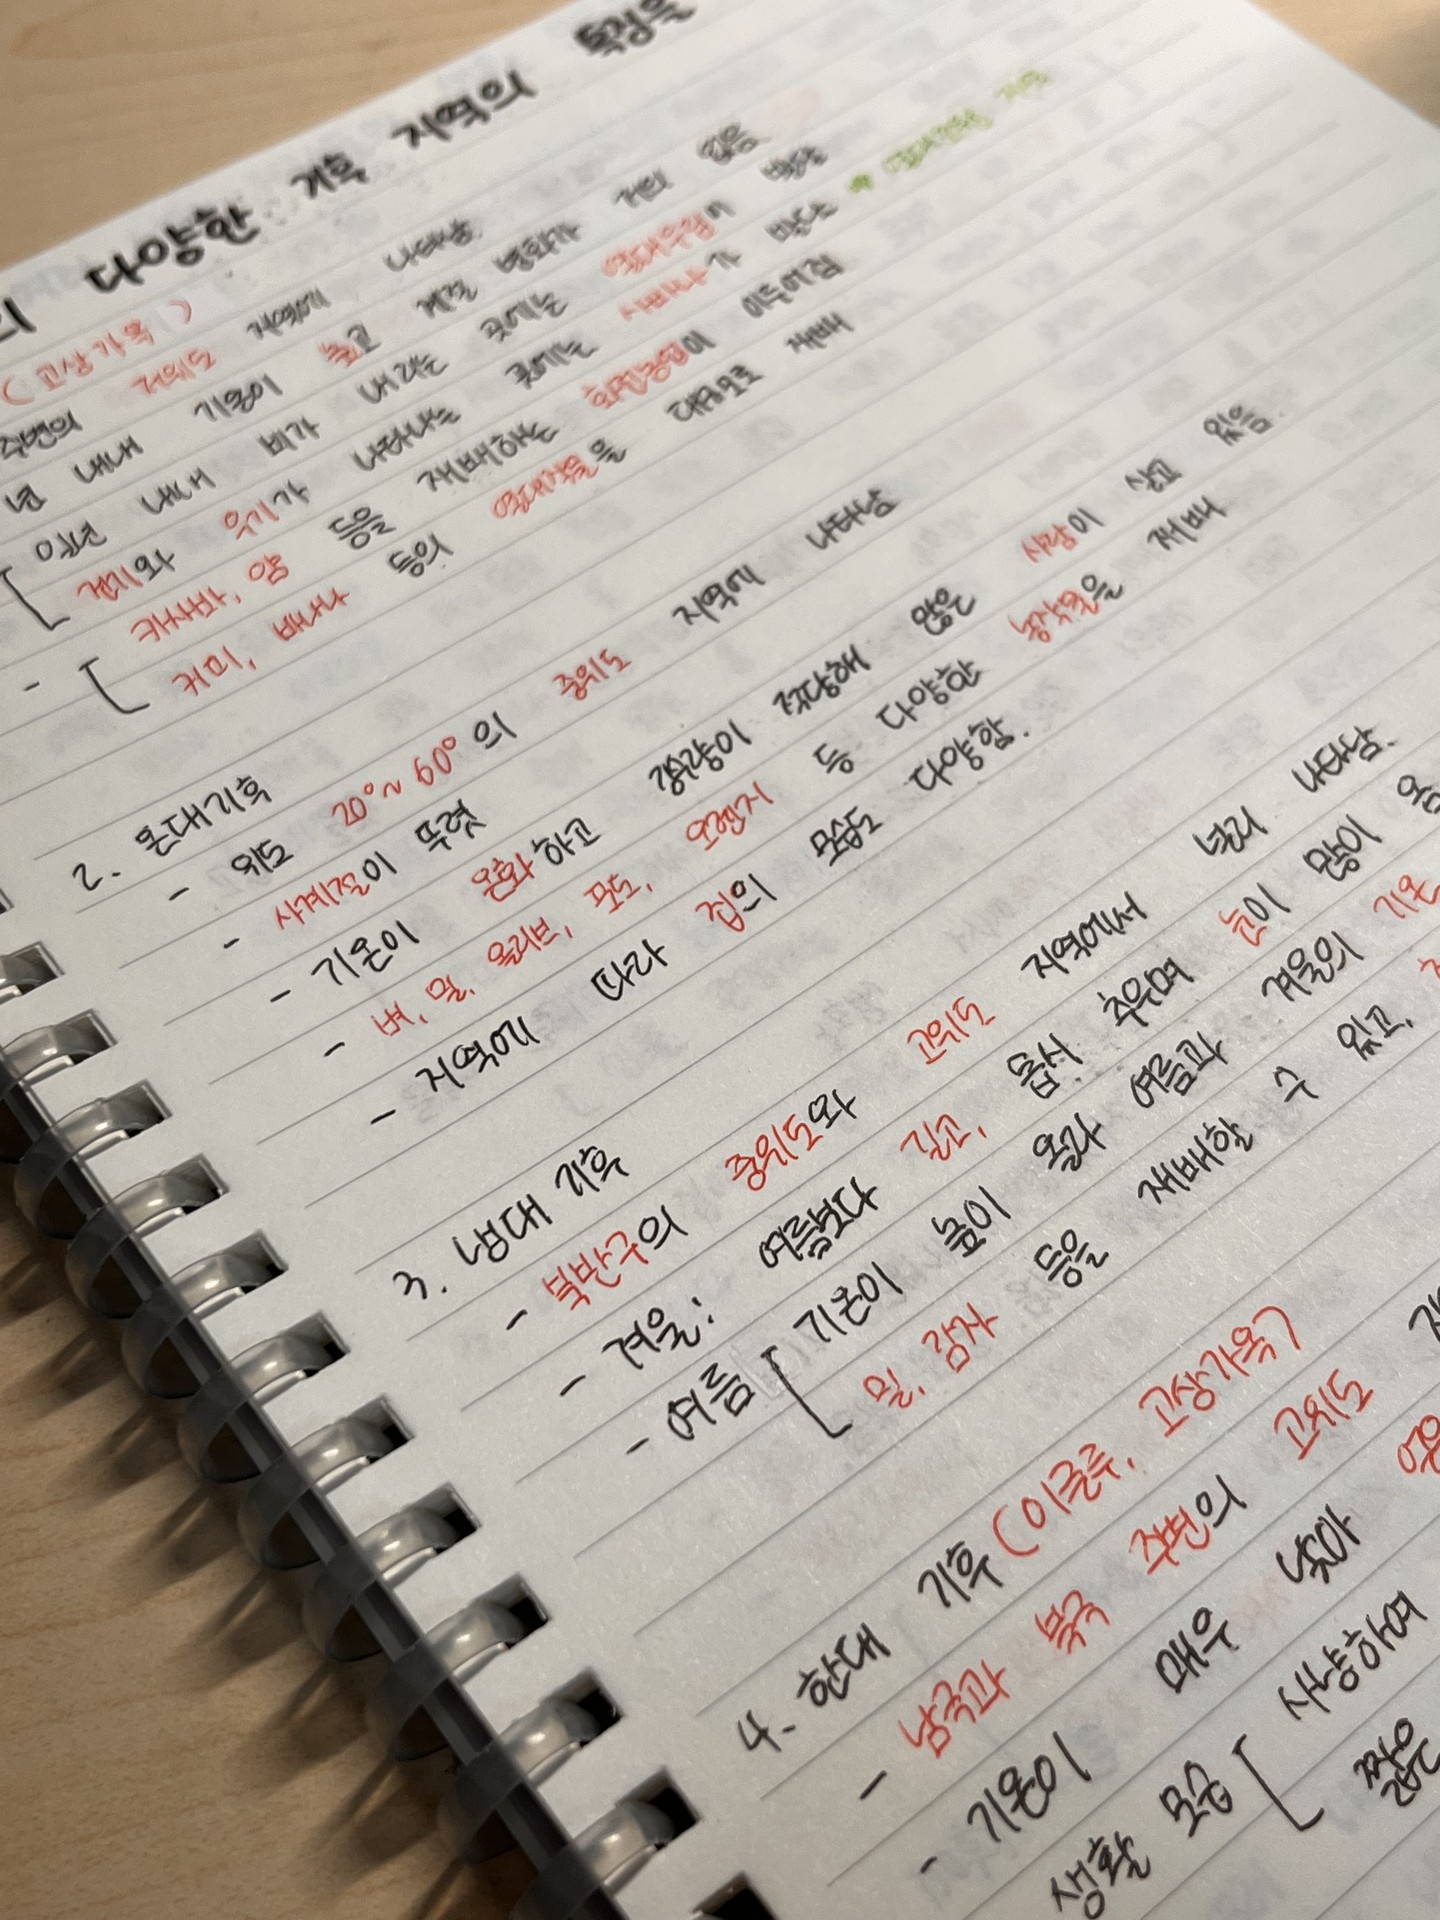 의 다양한 기후 지역의 특징을
(고상가옥)
주변의 저위도 지역에 나타남.
년 내내 기온이 높고 계절 변화가 거의 없음
일년 내내 비가 내리는 곳에는 열대우림이 발달
건기와 우기가 나타나는 곳에는 사바나가 발달
- 카사바, 얌 등을 재배하는 화전농업이 이루어짐
커피, 바나나 등의 열대작물을 대규모로 재배
2. 온대기후
- 위도 20°~60°의 중위도 지역에 나타남
- 사계절이 뚜렷
- 기온이 온화하고 강수량이 적당해 많은 사람이 살고 있음.
- 벼, 밀, 올리브, 포도, 오렌지 등 다양한 농작물을 재배
- 지역에 따라 집의 모습도 다양함.
3. 냉대 기후
- 북반구의 중위도와 고위도 지역에서 널리 나타남.
- 겨울: 여름보다 길고, 몹시 추우며 눈이 많이
- 여름 기온이 높이 올라 여름과 겨울의 기온
밀, 감자 등을 재배할 수 있고,
4. 한대 기후 (이글루, 고상가옥)
- 남극과 북극 주변의 고위도
- 기온이 매우 낮아
생활 모습 사냥하여
짧은